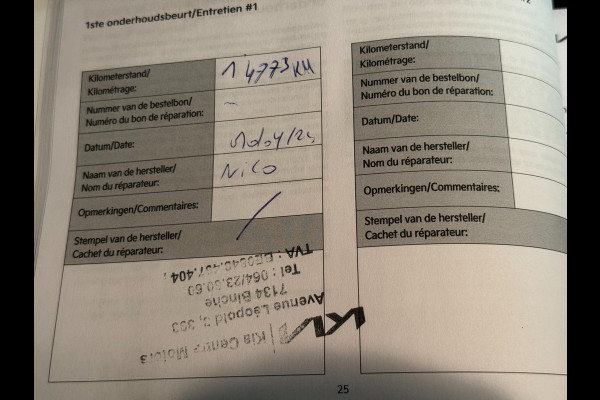 1ste onderhoudsbeurt/Entretien #1
Kilometerstand/
Kilométrage:
14773 KM
Nummer van de bestelbon/
Numéro du bon de réparation:
~
Datum/Date:
Naam van de hersteller/
Nom du réparateur:
Nico
Opmerkingen/Commentaires:
/
Stempel van de hersteller/
Cachet du réparateur:
Kia Centre Motors
Avenue Léopold
7134 Binche
Tel : 064/23.60.60
TVA :
Kilometerstand/
Kilométrage:
Nummer van de bestelbon/
Numéro du bon de réparation:
Datum/Date:
Naam van de hersteller/
Nom du réparateur:
Opmerkingen/Commentaires:
Stempel van de hersteller/
Cachet du réparateur:
25